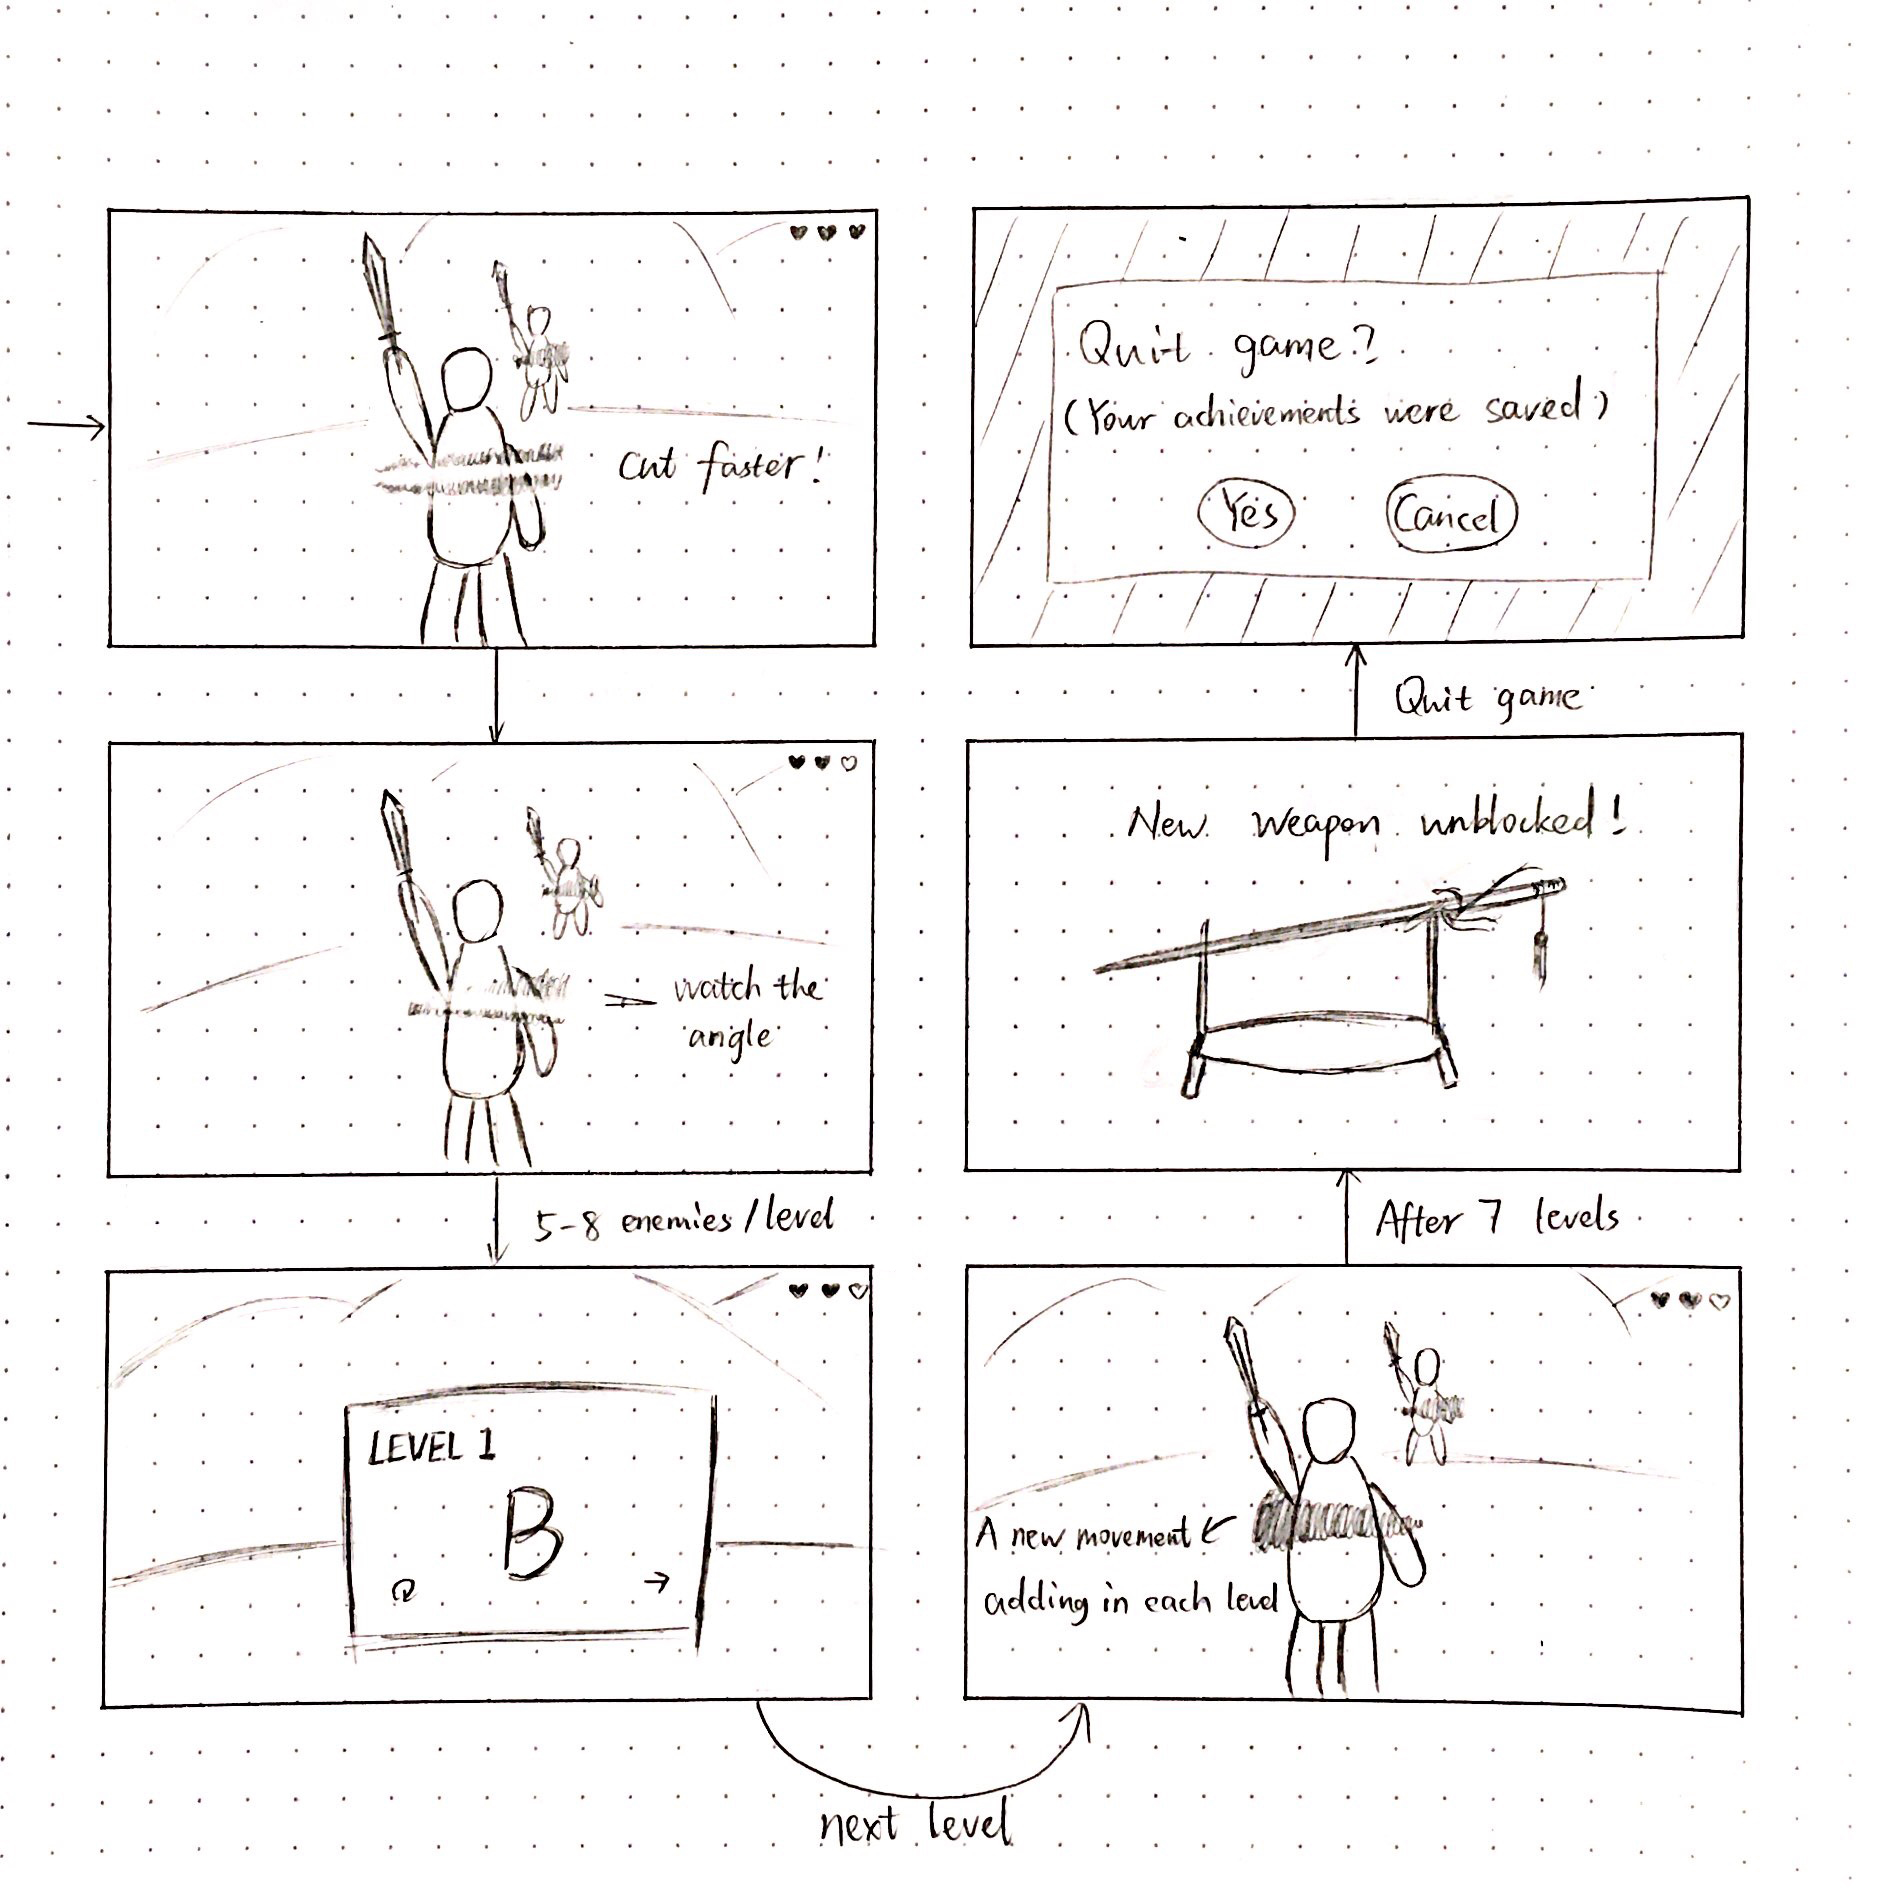 Cut faster!
watch the
angle
5-8 enemies/level
LEVEL 1
B
next level
A new movement
adding in each level
After 7 levels
New weapon unblocked!
Quit game
Quit game?
(Your achievements were saved)
Yes
Cancel